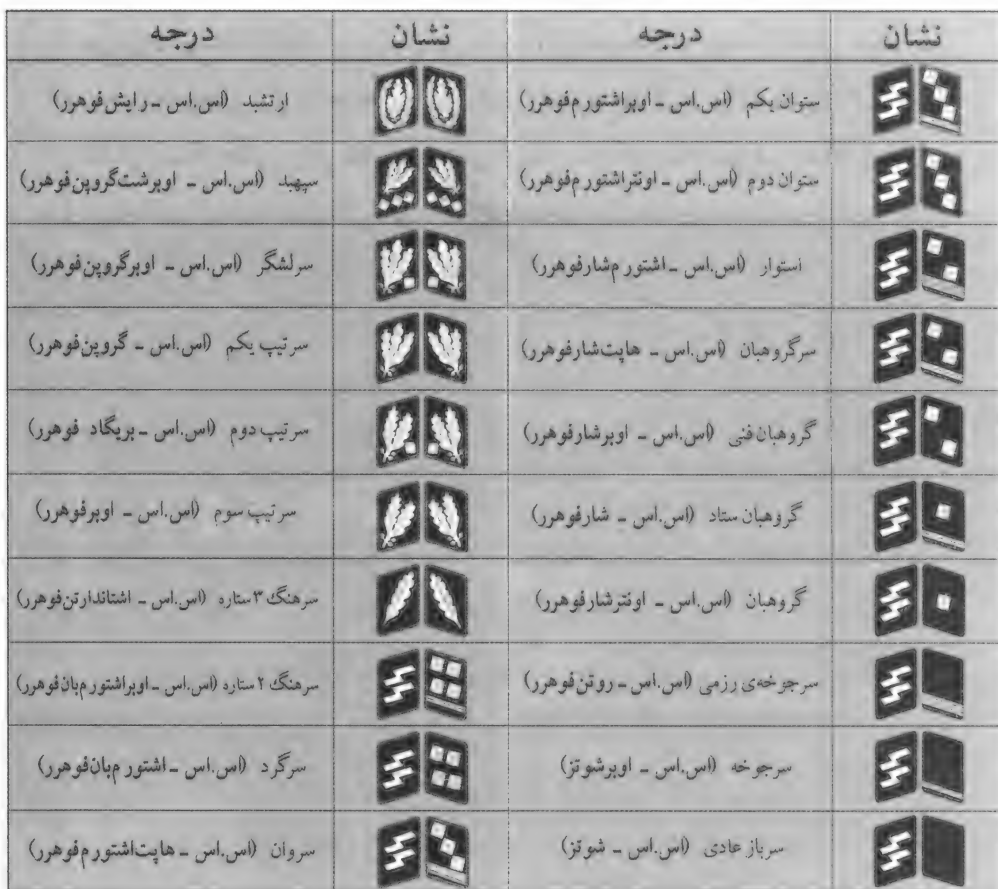 نشان درجه نشان درجه
ستوان یکم (اس.اس - اوبراشتورم‌فوهرر) ارتشبد (اس.اس - رایش‌فوهرر)
ستوان دوم (اس.اس - اونتراشتورم‌فوهرر) سپهبد (اس.اس - اوبرشت‌گروپن‌فوهرر)
استوار (اس.اس - اشتورم‌شارفوهرر) سرلشگر (اس.اس - اوبرگروپن‌فوهرر)
سرگروهبان (اس.اس - هاپت‌شارفوهرر) سرتیپ یکم (اس.اس - گروپن‌فوهرر)
گروهبان فنی (اس.اس - اوبرشارفوهرر) سرتیپ دوم (اس.اس - بریگاد فوهرر)
گروهبان ستاد (اس.اس - شارفوهرر) سرتیپ سوم (اس.اس - اوبرفوهرر)
گروهبان (اس.اس - اونترشارفوهرر) سرهنگ ۳ ستاره (اس.اس - اشتاندارتن‌فوهرر)
سرجوخه‌ی رزمی (اس.اس - روتن‌فوهرر) سرهنگ ۲ ستاره (اس.اس - اوبراشتورم‌بان‌فوهرر)
سرجوخه (اس.اس - اوبرشوتز) سرگرد (اس.اس - اشتورم‌بان‌فوهرر)
سرباز عادی (اس.اس - شوتز) سروان (اس.اس - هاپت‌اشتورم‌فوهرر)